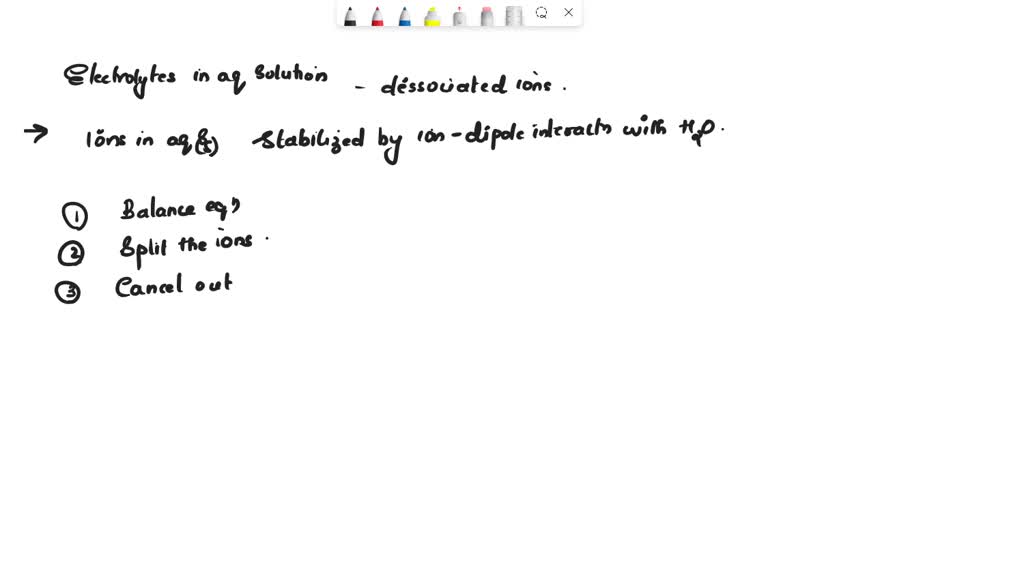 Electrolytes in aq solution - dissociated ions.
→ Ions in aq Stabilized by ion-dipole interacts with H₂O.
① Balance eqn
② Split the ions.
③ Cancel out